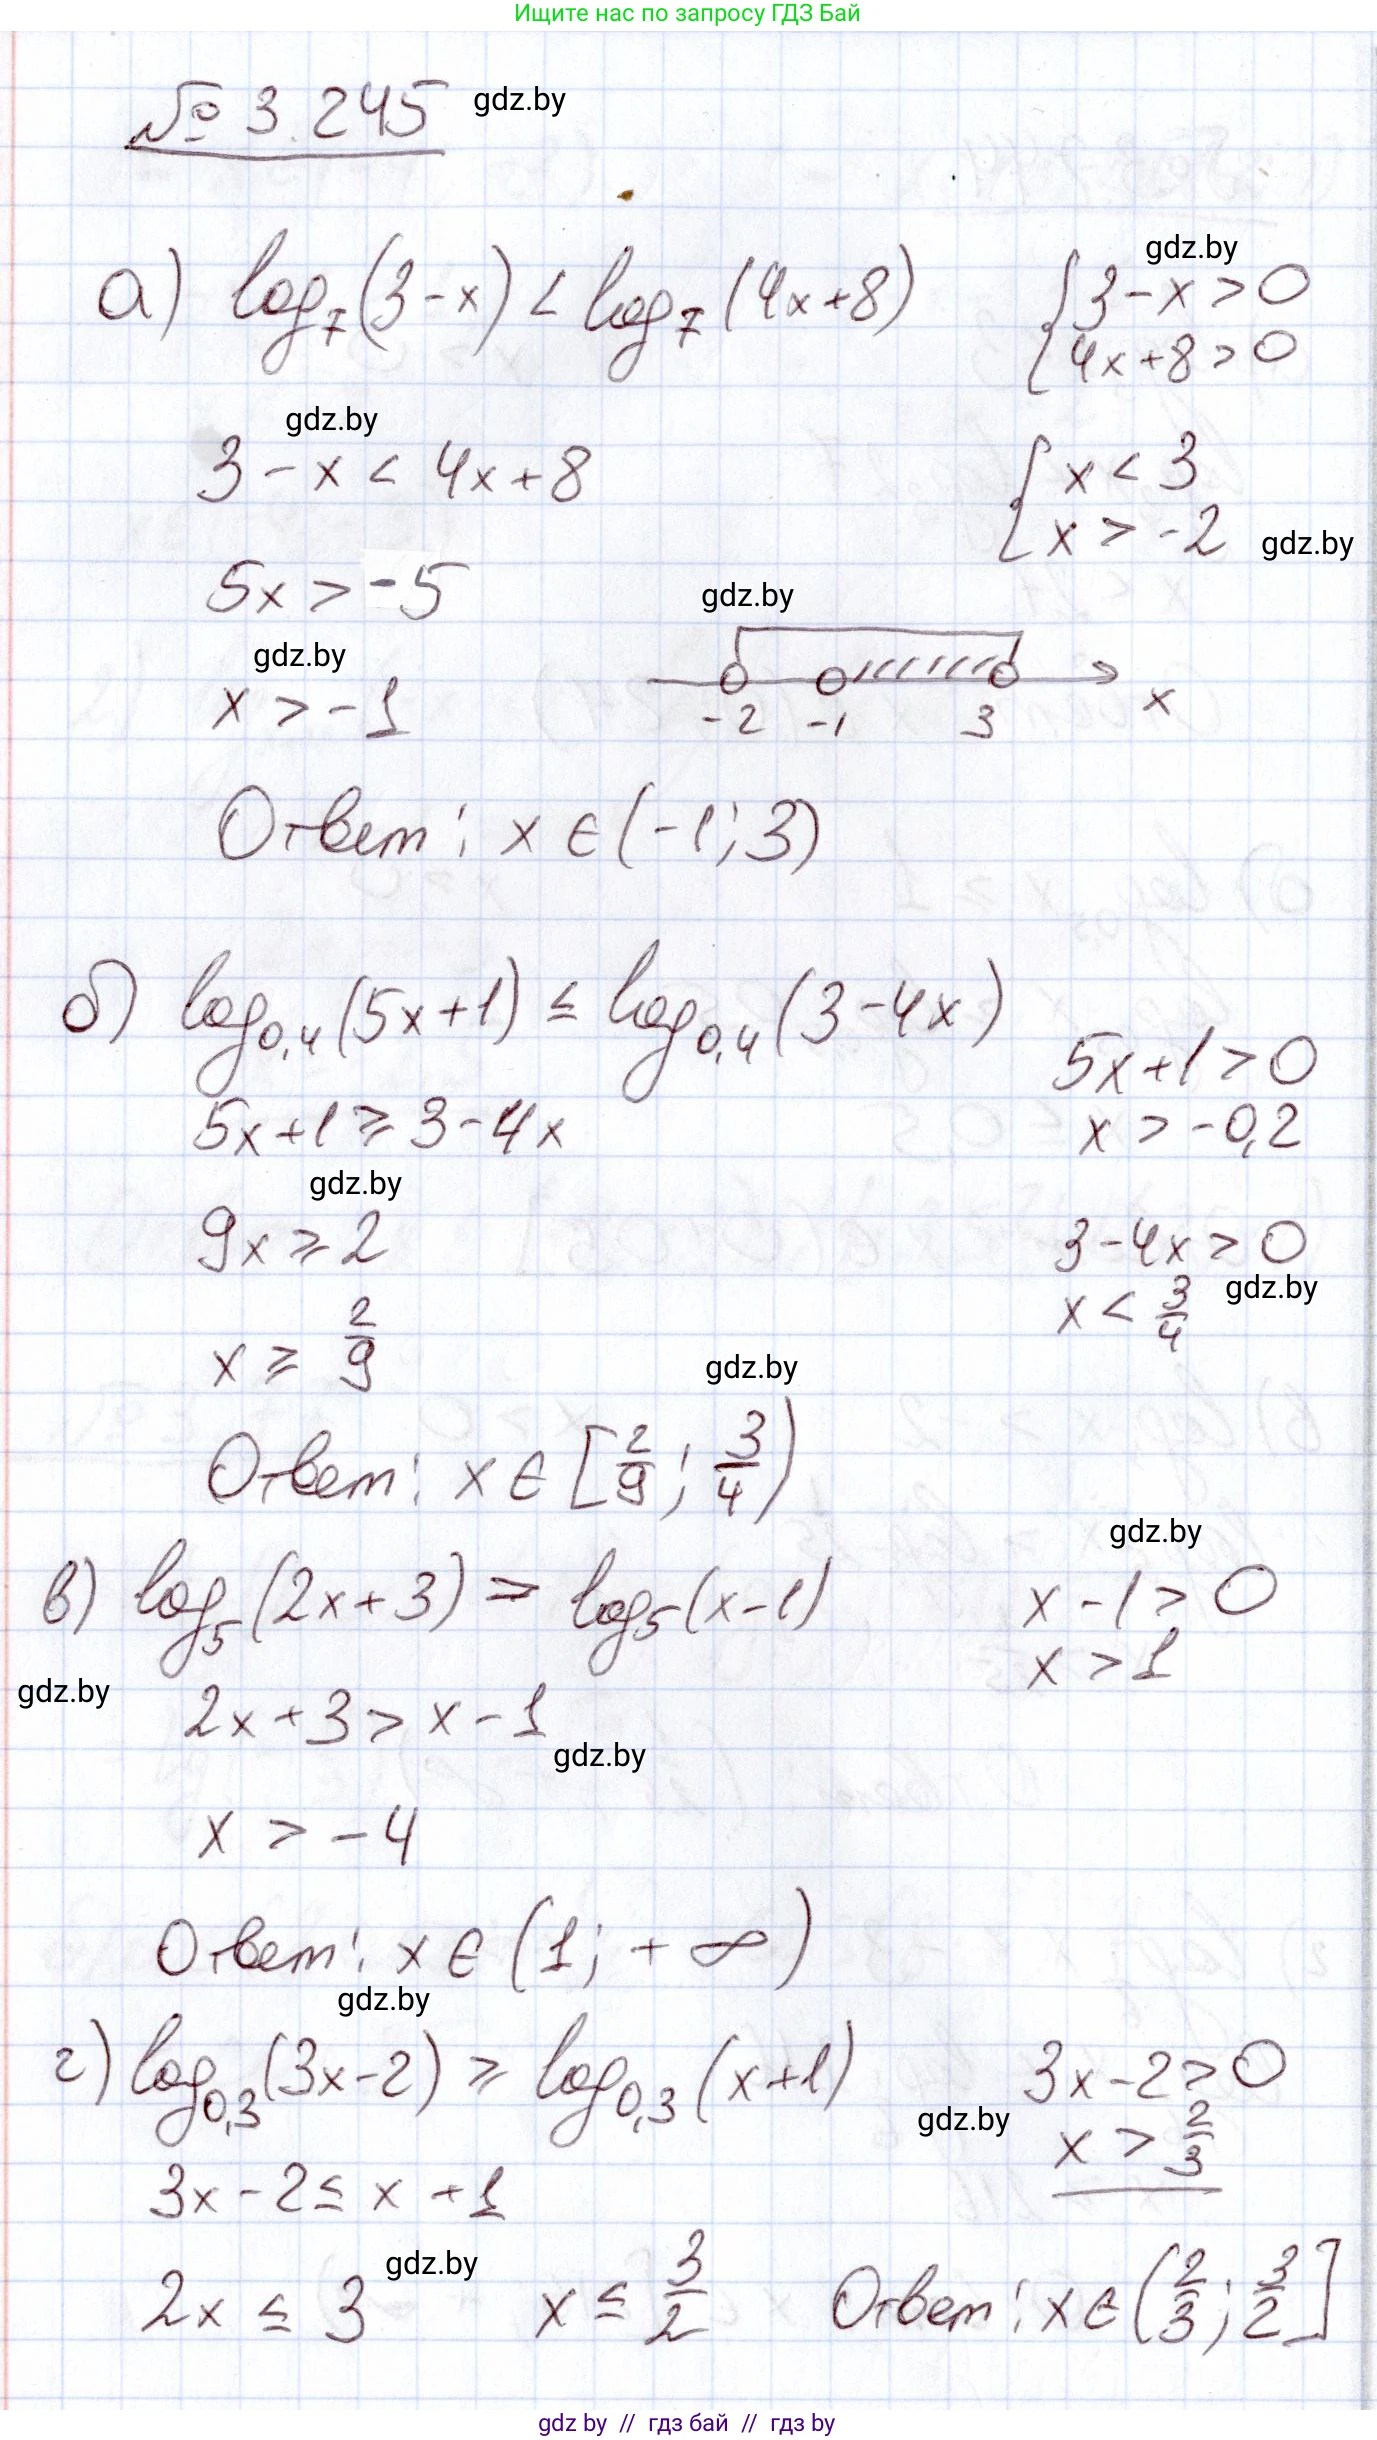 Ищите нас по запросу ГДЗ Бай
№ 3.245 gdz.by
gdz.by
а) log₇(3-x) < log₇(4x+8) {3-x>0
4x+8>0
gdz.by
3-x < 4x+8 {x<3
x>-2 gdz.by
5x > -5 gdz.by
gdz.by
x > -1 -2 -1 3 x
Ответ: x ∈ (-1; 3)
б) log₀,₄(5x+1) ≤ log₀,₄(3-4x) 5x+1>0
5x+1 ≥ 3-4x x > -0,2
gdz.by
9x ≥ 2 3-4x > 0
gdz.by
x ≥ 2/9 x < 3/4
gdz.by
Ответ: x ∈ [2/9; 3/4)
gdz.by
в) log₅(2x+3) > log₅(x-1) x-1>0
x > 1
gdz.by 2x+3 > x-1
gdz.by
x > -4
Ответ: x ∈ (1; +∞)
gdz.by
г) log₀,₃(3x-2) ≥ log₀,₃(x+1) 3x-2>0
gdz.by x > 2/3
3x-2 ≤ x+1
gdz.by
2x ≤ 3 x ≤ 3/2 Ответ: x ∈ (2/3; 3/2]
gdz by // гдз бай // гдз by